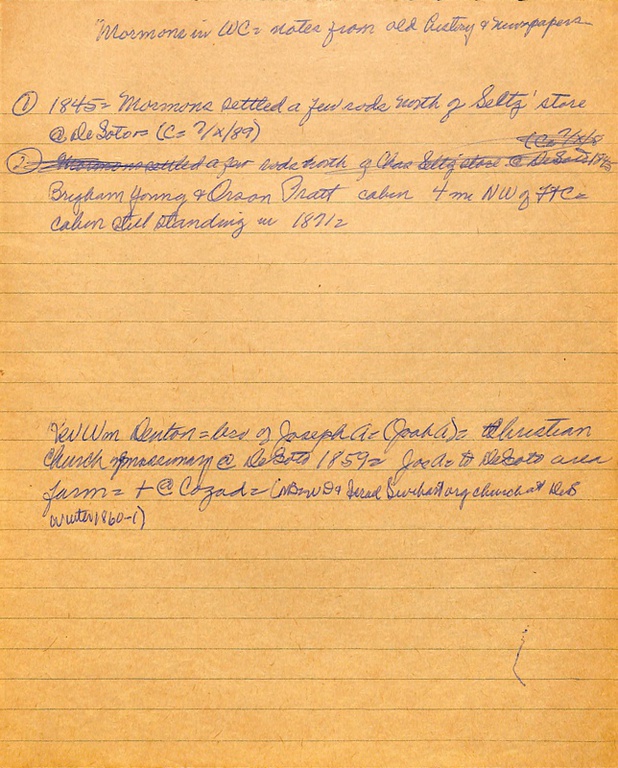 "Mormons in WC = notes from old history & newspapers
① 1845 = Mormons settled a few rods north of Seltz' store
@ DeSoto = (C = 7/X/89)
(C = 7/X/8
② Mormons settled a few rods north of Chas Seltz' store @ DeSoto 1845
Brigham Young & Orson Pratt cabin 4 mi NW of FtC =
cabin still standing in 1871 =
Rev Wm Denton = bro of Joseph A = = Christian
Church missionary @ DeSoto 1859 = Jos A = to DeSoto area
farm = + @ Cozad = ( org church at DeS
winter 1860-1)